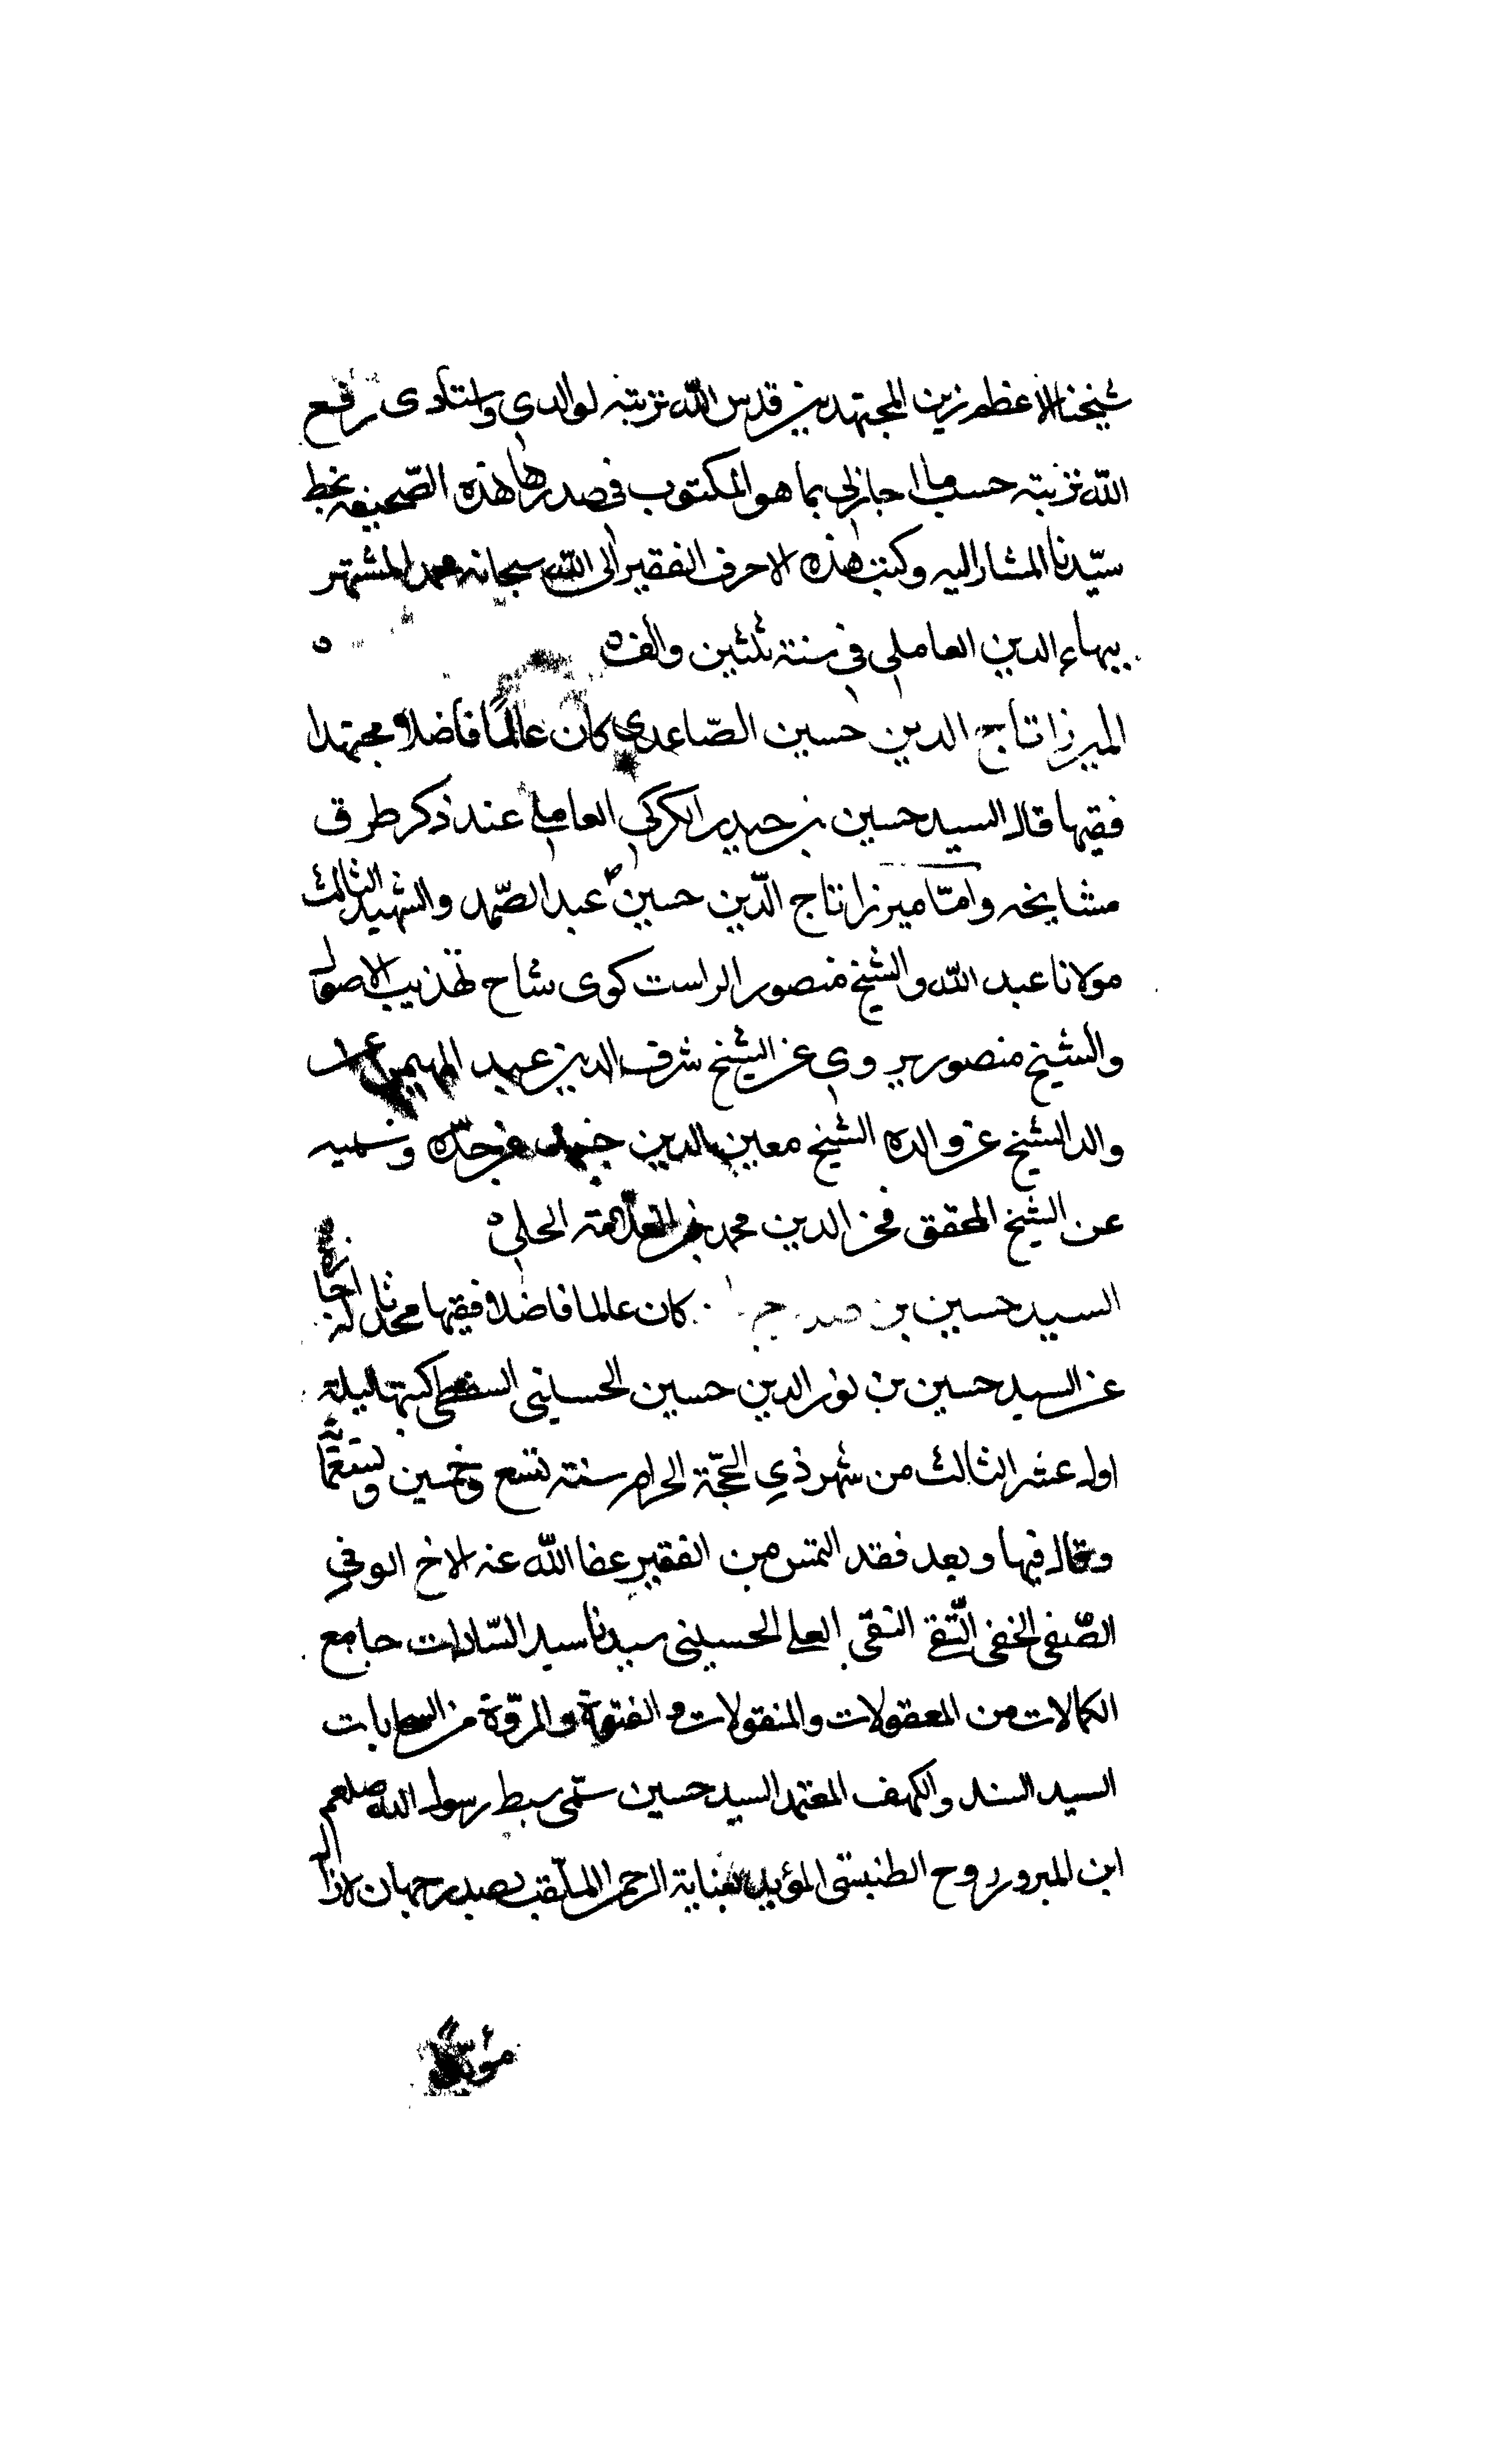 شيخنا الاعظم زين المجتهدين قدس الله تربته لوالدي واستادى رفع
الله تربته حسب ما اجاز لي بما هو المكتوب في صدر هذه الصّحيفه بخط
سيّدنا المشار اليه وكتب هذه الاحرف الفقير الى الله سبحانه محمد المشتهر
ببهاء الدين العاملي في سنة ثلثين والف ه
الميرزا تاج الدين حسين الصّاعدي كان عالمًا فاضلا مجتهدا
فقيها قال السيد حسين بن حيدر الكركي العاملي عند ذكر طرق
مشايخه وامّا ميرزا تاج الدّين حسين عبد الصّمد والشهيد الثالث
مولانا عبد الله والشيخ منصور الراست كوى شاح تهذيب الاصول
والشيخ منصور يروي عن الشيخ شرف الدين عبد المهيمن عن
والد الشيخ عن والده الشيخ معين الدين جنيد عن جدّه وسميه
عن الشيخ المحقق فخر الدين محمد بن العلامة الحلي ه
السيد حسين بن كان عالما فاضلا فقيها محدثا له اجازة
عن السيد حسين بن نور الدين حسين الحسيني كتبها ليلة
اول عشر الثالث من شهر ذي الحجّة الحرام سنة تسع وخمسين وتسعمائة
وقال فيها وبعد فقد التمس من الفقير عفا الله عنه الاخ الوفي
الصّفي الخفي التّقي النقي العلي الحسيني سيدنا سيد السّادات جامع
الكمالات من المعقولات والمنقولات و الفتوة والمروّة من
السيد السند والكهف المعتمد السيد حسين سمّي سبط رسول الله صلعم
ابن المبرور روح المؤيد بعناية الرحمن الملقب بصدر جهان لا زال
مؤيّدا